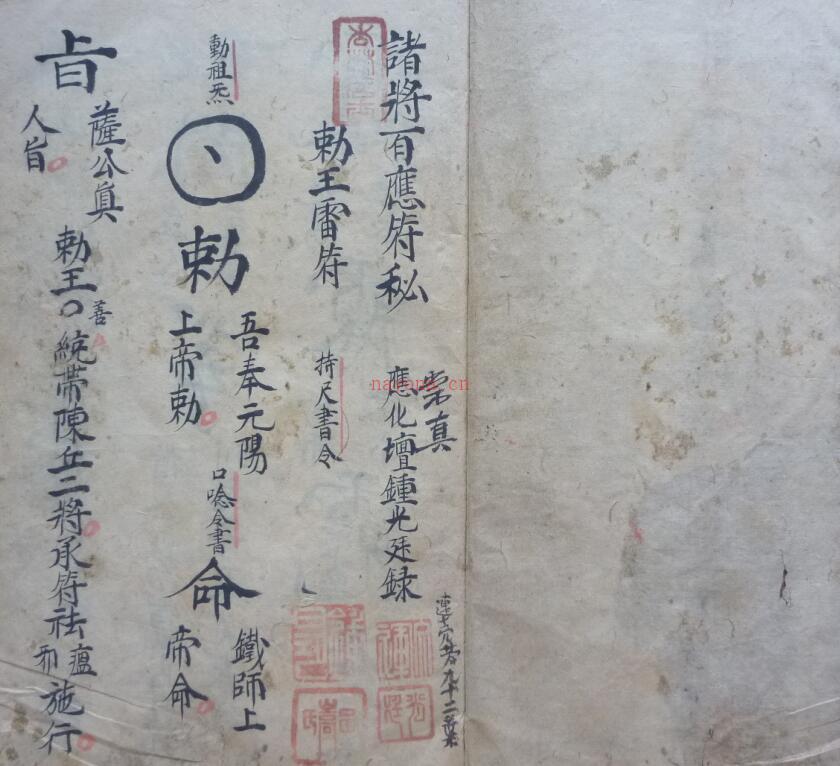 諸將百應符秘
崇真
應化壇鍾光廷録
勅王雷符
持尺書令
吾奉元陽
上帝勅
口唸令書
鐵師上
帝命
動祖炁
勅
命
旨
薩公真
人旨
勅王善〇統帶陳丘二將承符祛瘟邪施行
nayona.cn